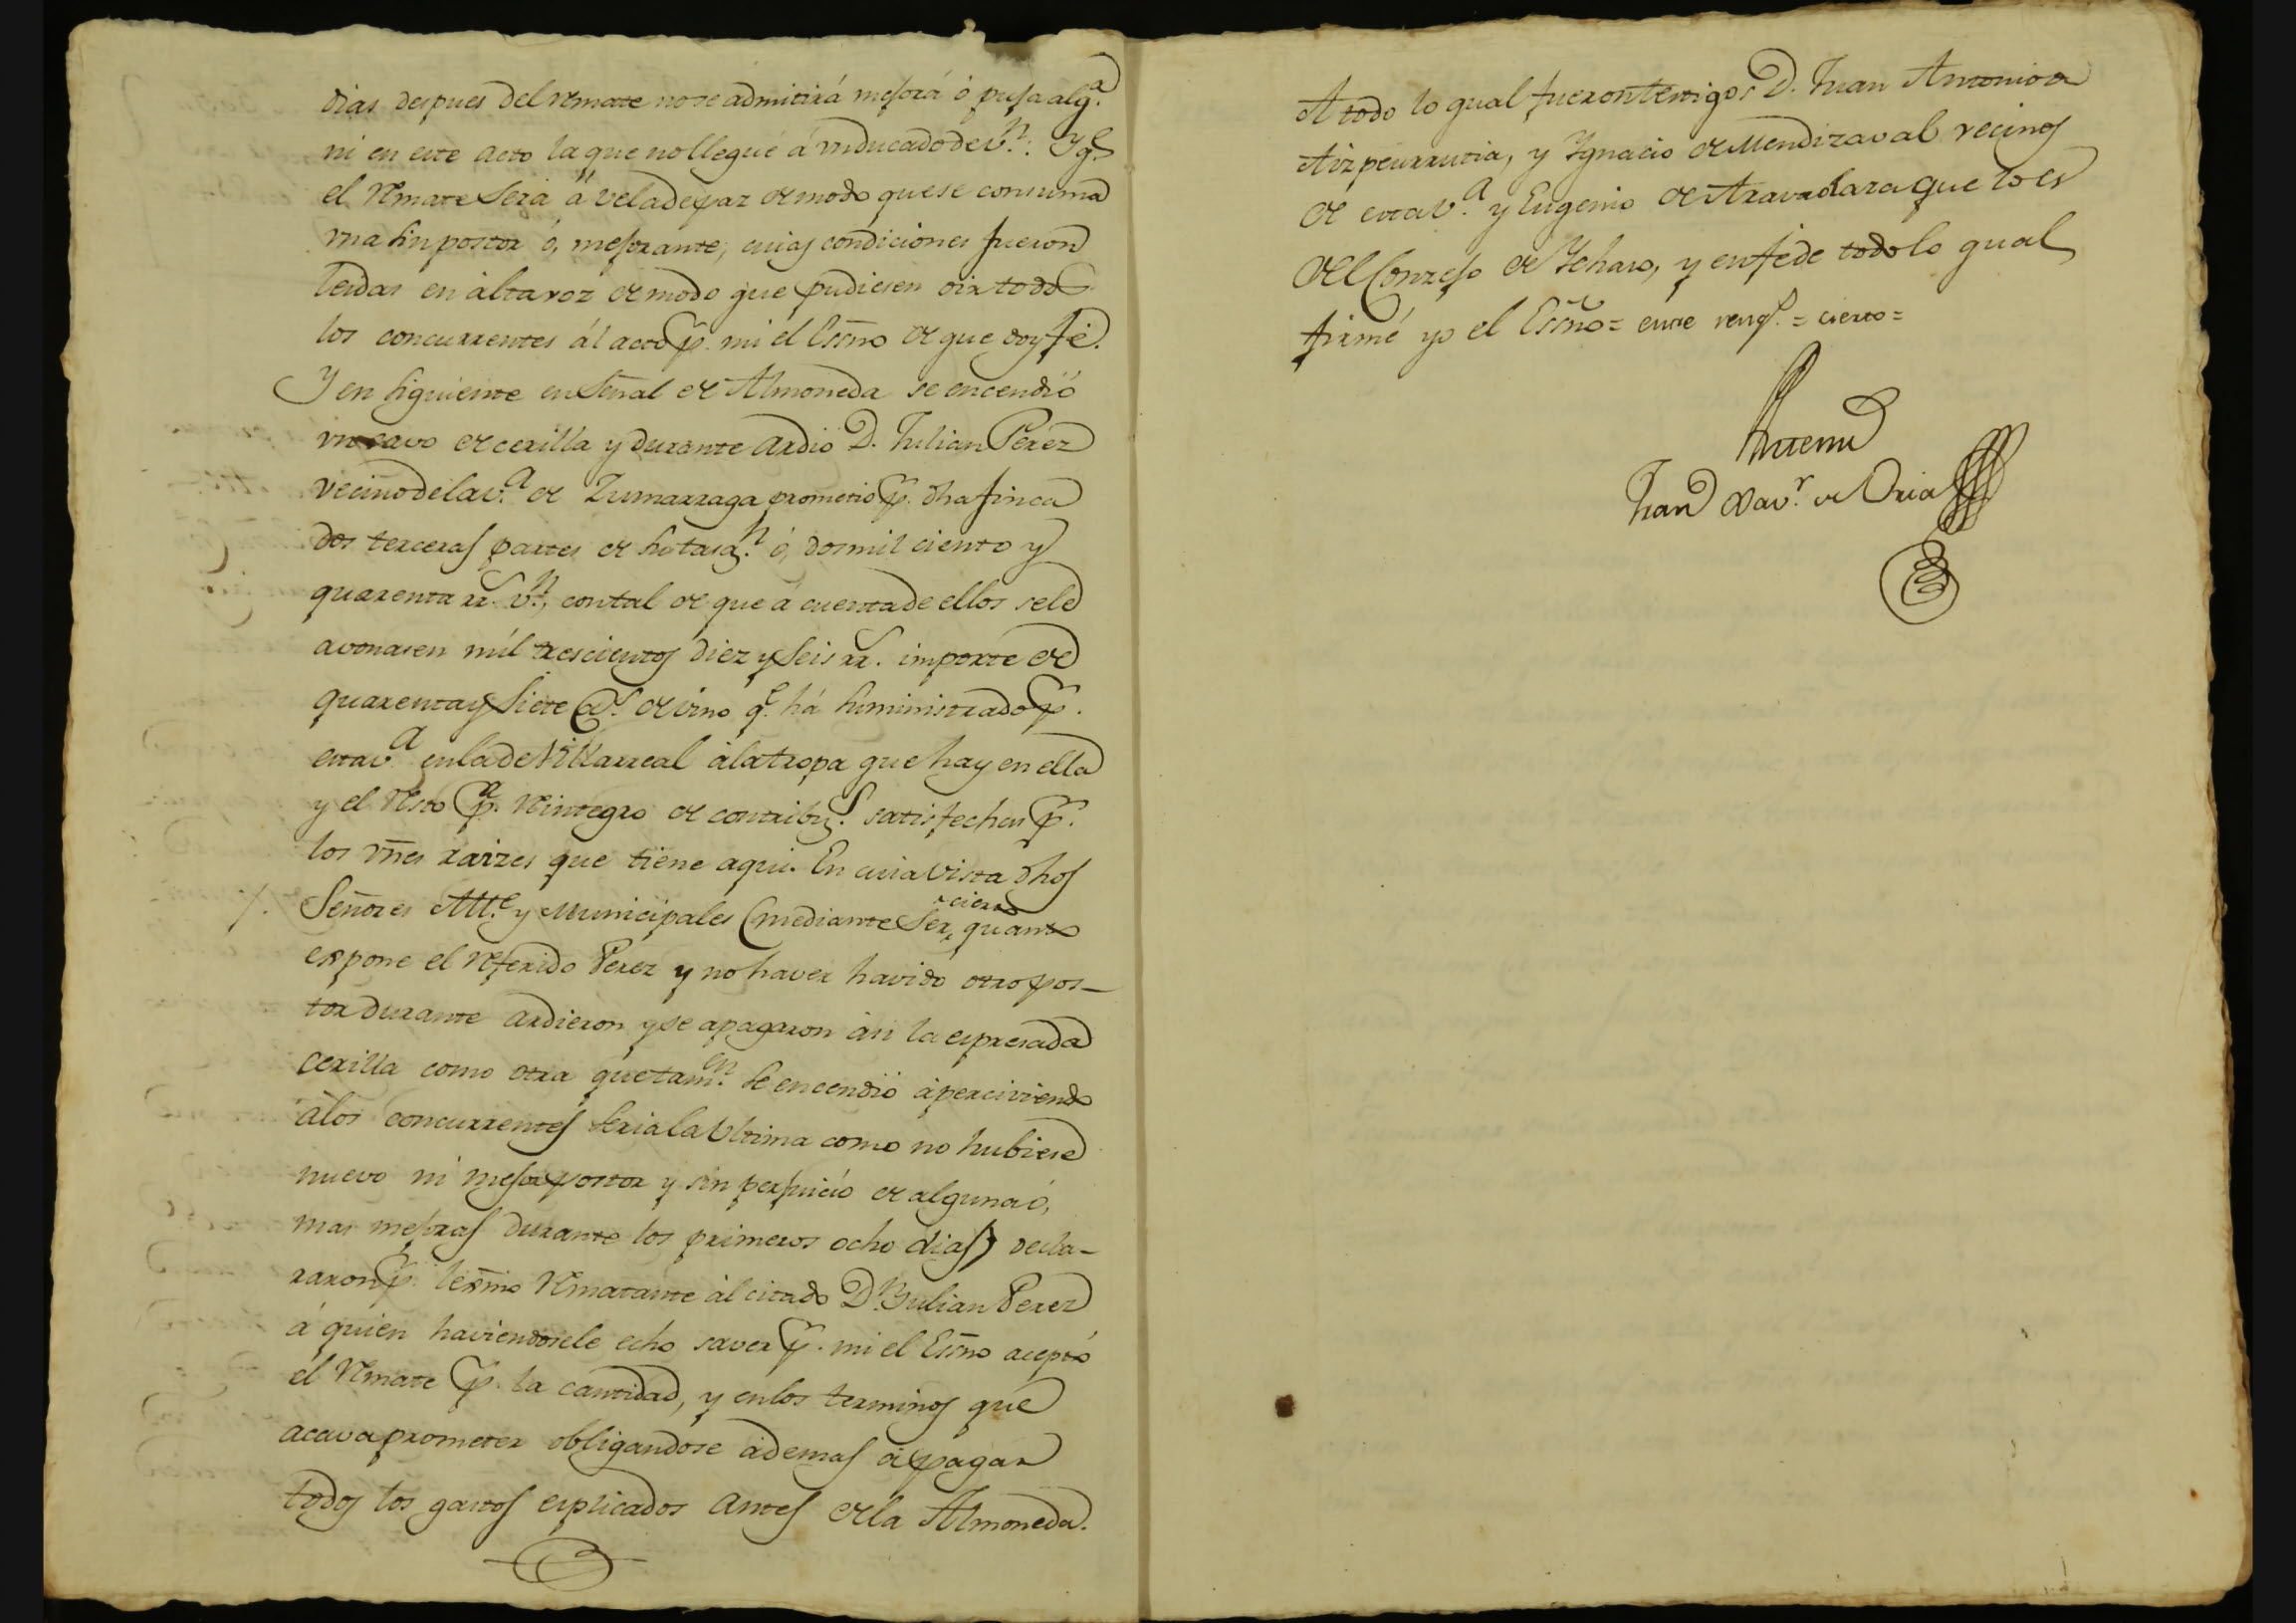 dias despues del remate no se admitirá mejorá ó puja alg.ª
ni en este acto la que no llegue á un ducado de v.n: Y q.e
el remate será á vela de paz de modo que se consuma
una sin postor ó, mejorante, cuias condiciones fueron
leidas en álta voz de modo que pudiesen oir todos
los concurrentes ál acto p.r mi el Essno de que doy fé.
Y en siguiente en señal de Almoneda se encendió
un cavo de cerilla y durante ardió D. Julian Perez
vecino de la v.ª de Zumarraga prometió p.r dha finca
dos terceras partes de su tasaz.n ó, dos mil ciento y
quarenta rr.s v.n, con tal de que á cuenta de ellos se le
avonasen mil trescientos diez y seis rr.s importe de
quarenta y siete @.s de vino q.e há suministrado p.r
esta v.ª en la de Villarreal á la tropa que hay en ella
y el resto p.ª reintegro de contribuz.s satisfechas p.r
los vnes raizes que tiene aqui. En cuia vista dhos
/. Señores Alle.e y Municipales (mediante ser, cierto quanto
expone el referido Perez y no haver havido otro pos-
tor durante ardieron y se apagaron ási la espresada
cerilla como otra que tam.en se encendió áperciviendo
álos concurrentes seria la ultima como no hubiese
nuevo ni mejor postor y sin perjuicio de alguna ó,
mas mejoras durante los primeros ocho dias) decla-
raron p.r lexmo rematante ál citado D.n Julian Perez
á quien haviendosele echo saver p.r mi el Essno aceptó
el remate p.r la cantidad, y en los terminos que
acava prometer obligandose ádemas á pagar
todos los gastos esplicados antes de la Almoneda.
A todo lo qual fueron testigos D. Juan Antonio de
Aizpeurrutia, y Ygnacio de Mendizaval vecinos
de esta v.ª y Eugenio de Aravaolaza que lo es
del Conzejo de Ychaso, y en fe de todo lo qual
firmé yo el Essno = entre reng.s = cierto =
Antemi
Juan Xav.r de Oria